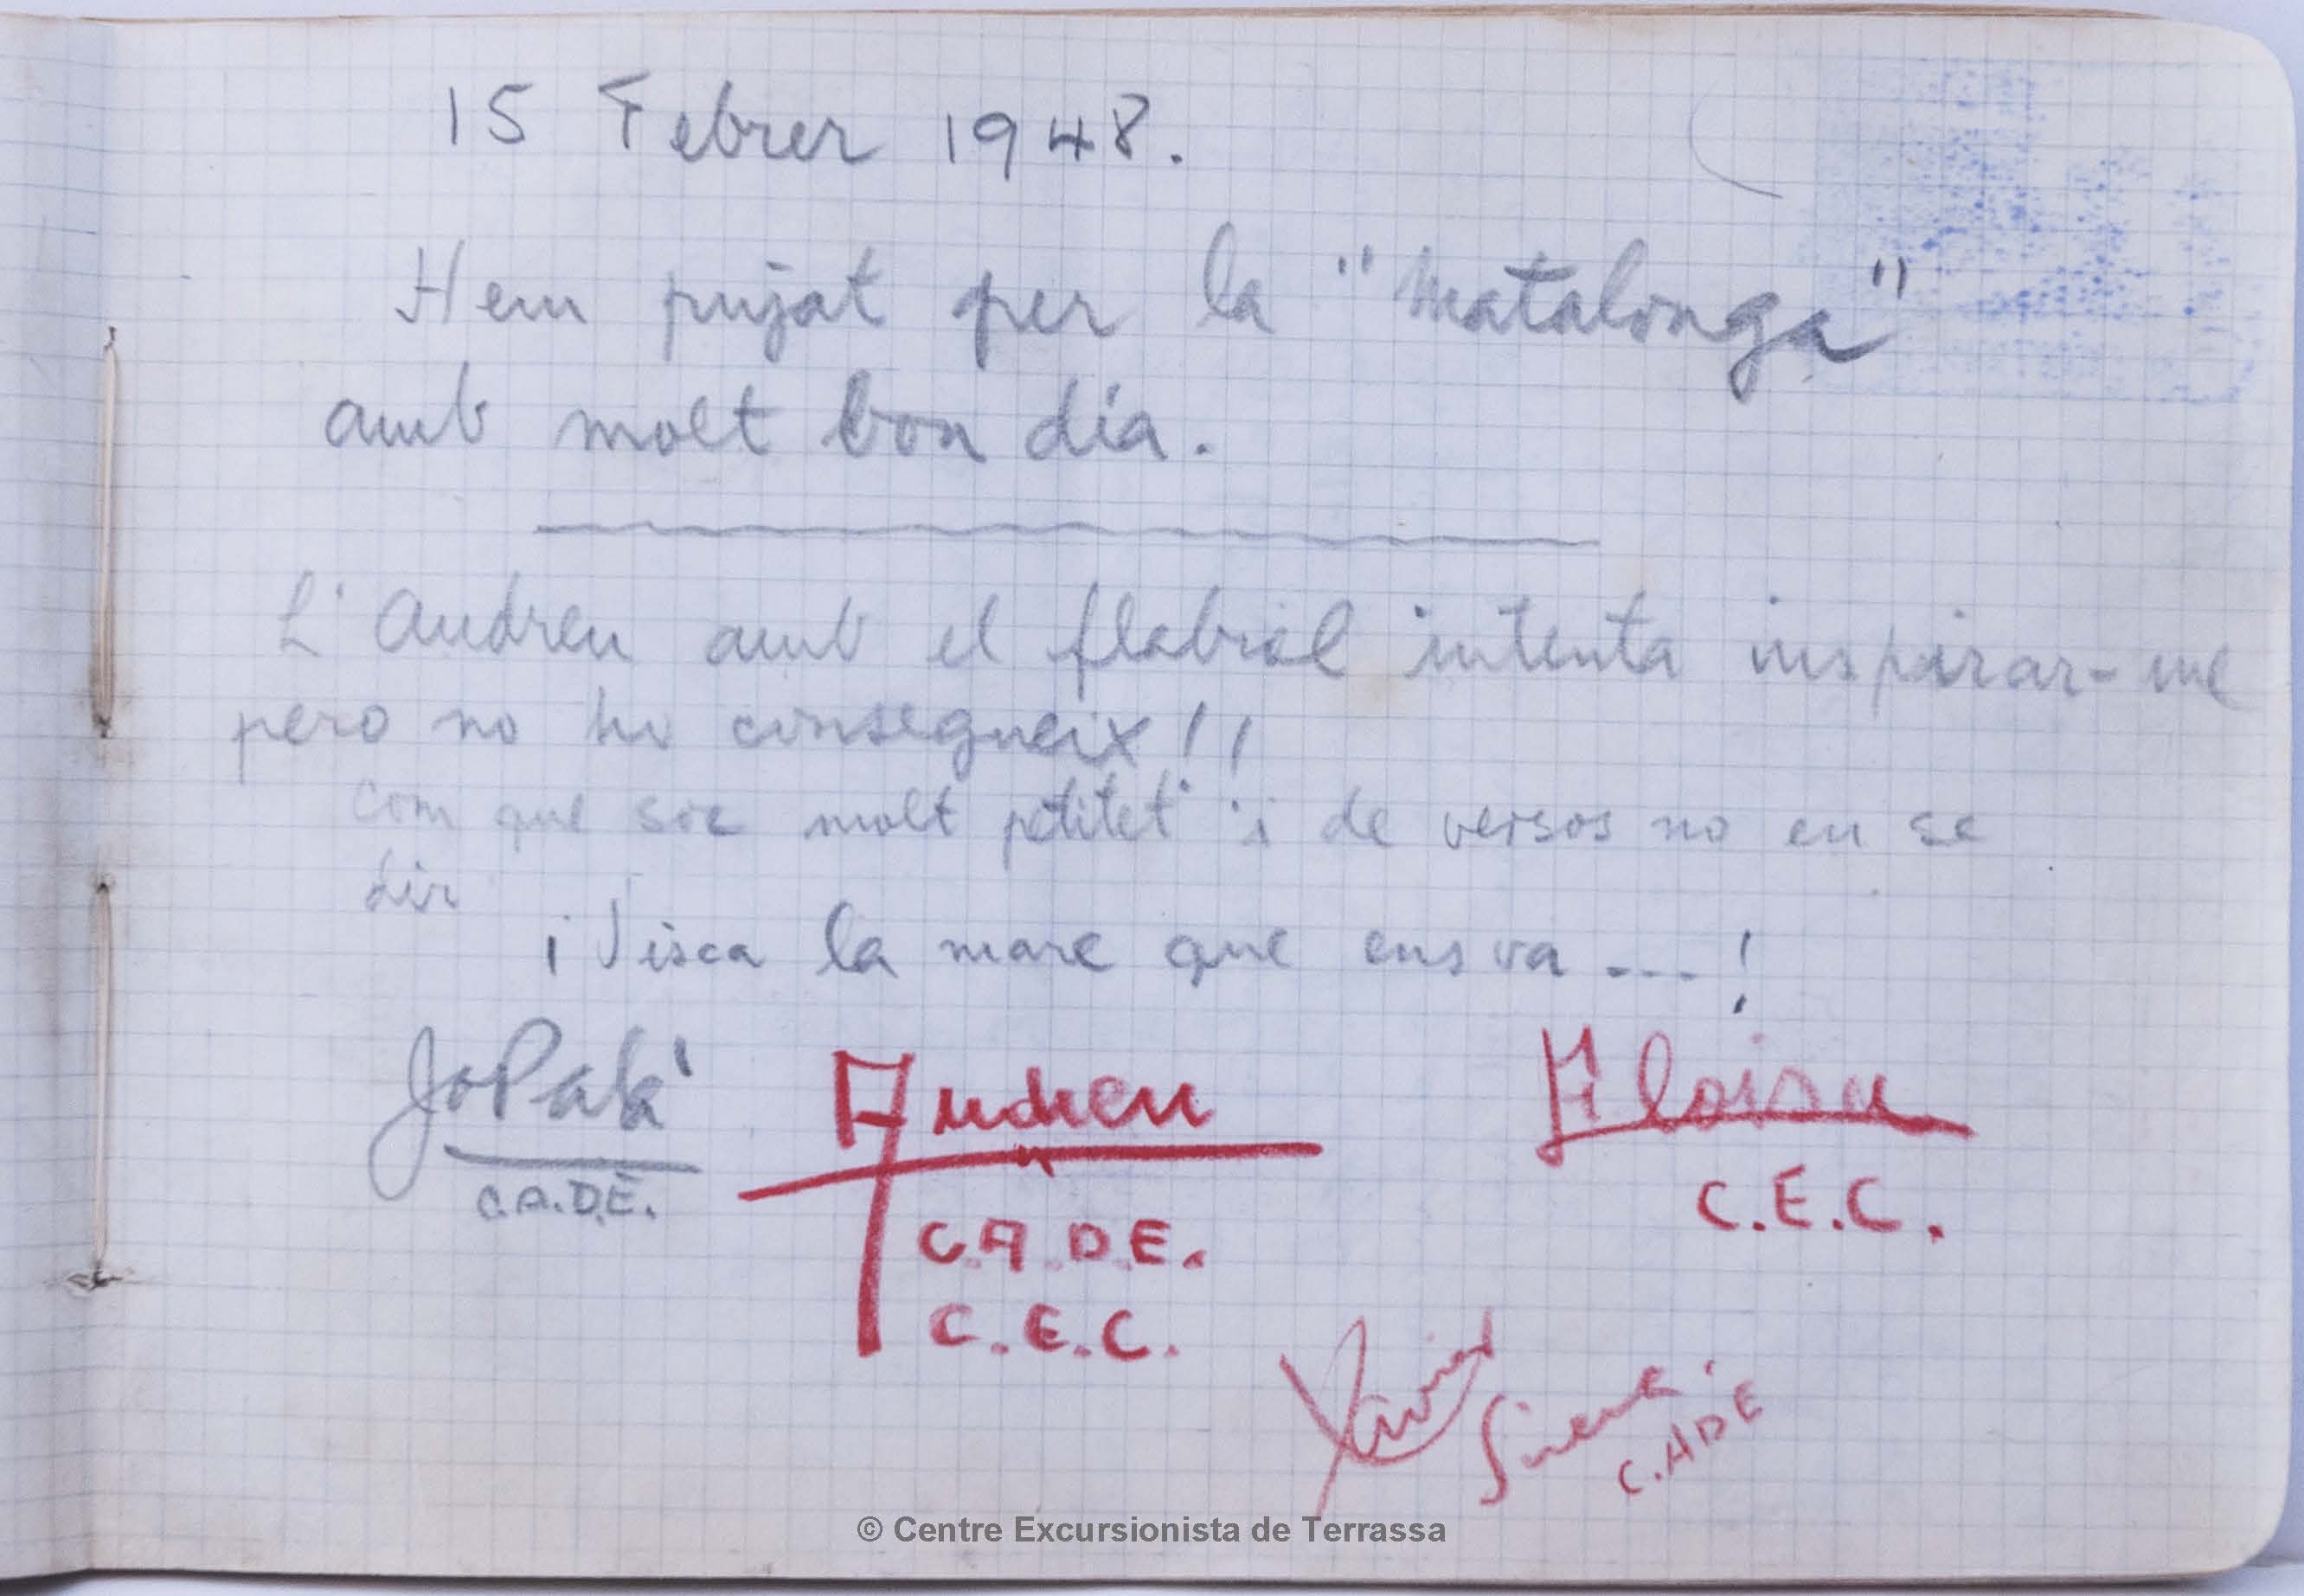 15 Febrer 1948.
Hem pujat per la "Matalonga"
amb molt bon dia.
L'Andreu amb el flabiol intenta inspirar-me
pero no ho consegueix!!
Com que soc molt petitet i de versos no en se
dir
¡Visca la mare que ens va ---!
Andreu
C.A.D.E.
C.A.D.E.
C.E.C.
C.E.C.
Xavier
C.ADE
© Centre Excursionista de Terrassa